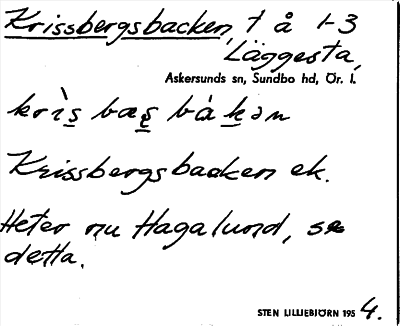 Krissbergsbacken, t å 1-3
Läggesta,
Askersunds sn, Sundbo hd, Ör. l.
krìs bæs bàkən
Krissbergsbacken ek.
Heter nu Hagalund, se
detta.
STEN LILLIEBJÖRN 1954.